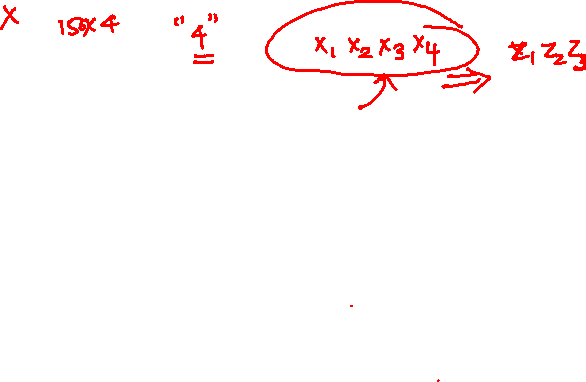 X 150x4 "4" x1 x2 x3 x4 ⇒ z1 z2 z3